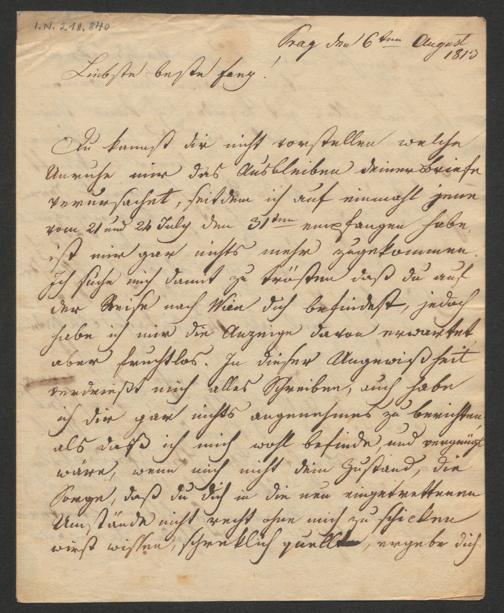 I.N. 218.840
Prag den 6ten August
1813
Liebste beste Fany!
Du kannst dir nicht vorstellen welche
Unruhe mir das Ausbleiben deiner Briefe
verursachet, seitdem ich auf einmahl jene
vom 21 und 24 July den 31ten empfangen habe
ist mir gar nichts mehr zugekommen.
Ich suche mich damit zu trösten daß du auf
der Reise nach Wien dich befindest, jedoch
habe ich mir die Anzeige davon erwartet
aber fruchtlos. In dieser Ungewißheit
verdrießt mich alles Schreiben, auch habe
ich dir gar nichts angenehmes zu berichten,
als daß ich mich wohl befinde und vergnügt
wäre, wenn mich nicht dein Zustand, die
Sorge, daß du dich in die neu eingetrettenen
Umstände nicht recht ohne mich zu schicken
wirst wissen, schreklich quellte, ergebe dich